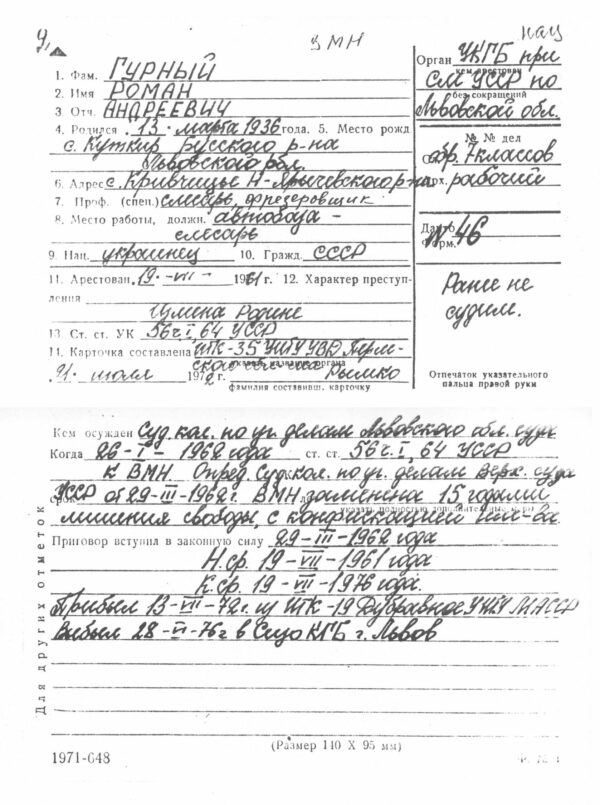 У.
ВМН
нац
1. Фам. ГУРНЫЙ
2. Имя РОМАН
3. Отч. АНДРЕЕВИЧ
4. Родился 13 марта 1936 года. 5. Место рожд.
с. Куткир Русского р-на
Львовского обл.
6. Адрес с. Кривчицы Н-Ярычевского р-на
7. Проф. (спец.) слесарь, фрезеровщик
8. Место работы, должн. автобаза –
слесарь
9. Нац. украинец 10. Гражд. СССР
11. Арестован 19 - VII - 1961 г. 12. Характер преступ-
ления
Измена Родине
13. Ст. ст. УК 56 ч. I, 64 УССР
14. Карточка составлена ИТК-35 УИТУ УВД Перм-
ской
21 июля 1972 г. Рымко
фамилия составивш. карточку
Орган УКГБ при
кем арестован
СМ УССР по
без сокращений
Львовской обл.
№ № дел
обр. 7 классов
Арх. рабочий
N 46
Форм.
Ранее не
судим.
Отпечаток указательного
пальца правой руки
Кем осужден Суд. кол. по уг. делам Львовского обл. суда
Когда 26 - I - 1962 года ст. ст. 56 ч. I, 64 УССР
к ВМН. Опред. Суд. кол. по уг. делам Верх. суда
УССР от 29-III-1962 г. ВМН заменена 15 годами
лишения свободы, с конфискацией им-ва.
Приговор вступил в законную силу 29 - III - 1962 года
Н. ср. 19 - VII - 1961 года
К. ср. 19 - VII - 1976 года.
Прибыл 13-VII-72 г. из ИТК-19 Дубравное УИТУ МАССР
Выбыл 28 - VI - 76 г в Сизо КГБ г. Львов
Для других отметок
(Размер 140 X 95 мм)
1971-648